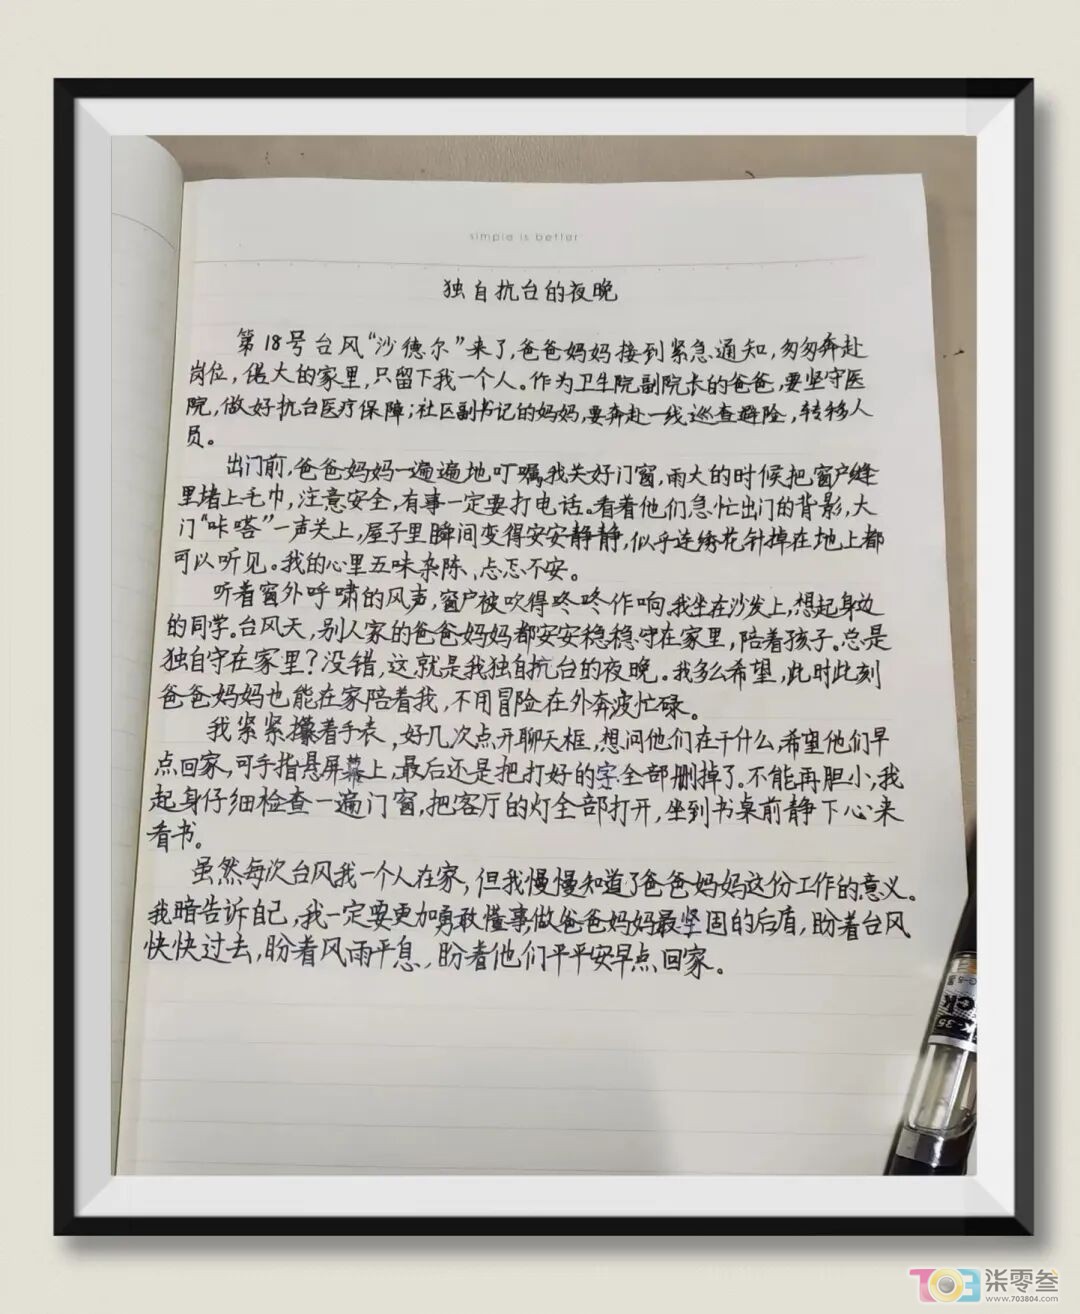 simple is better
独自抗台的夜晚
第18号台风“沙德尔”来了,爸爸妈妈接到紧急通知,匆匆奔赴
岗位,偌大的家里,只留下我一个人。作为卫生院副院长的爸爸,要坚守医
院,做好抗台医疗保障;社区副书记的妈妈,要奔赴一线巡查避险,转移人
员。
出门前,爸爸妈妈一遍遍地叮嘱我关好门窗,雨大的时候把窗户缝
里堵上毛巾,注意安全,有事一定要打电话。看着他们急忙出门的背影,大
门“咔嗒”一声关上,屋子里瞬间变得安安静静,似乎连绣花针掉在地上都
可以听见。我的心里五味杂陈、忐忑不安。
听着窗外呼啸的风声,窗户被吹得咚咚作响。我坐在沙发上,想起身边
的同学。台风天,别人家的爸爸妈妈都安安稳稳守在家里,陪着孩子。总是
独自守在家里?没错,这就是我独自抗台的夜晚。我多么希望,此时此刻
爸爸妈妈也能在家陪着我,不用冒险在外奔波忙碌。
我紧紧攥着手表,好几次点开聊天框,想问他们在干什么,希望他们早
点回家,可手指悬屏幕上,最后还是把打好的字全部删掉了。不能再胆小,我
起身仔细检查一遍门窗,把客厅的灯全部打开,坐到书桌前静下心来
看书。
虽然每次台风我一个人在家,但我慢慢知道了爸爸妈妈这份工作的意义。
我暗告诉自己,我一定要更加勇敢懂事,做爸爸妈妈最坚固的后盾,盼着台风
快快过去,盼着风雨平息,盼着他们平平安早点回家。
K-35
703
柒零叁
www.703804.com